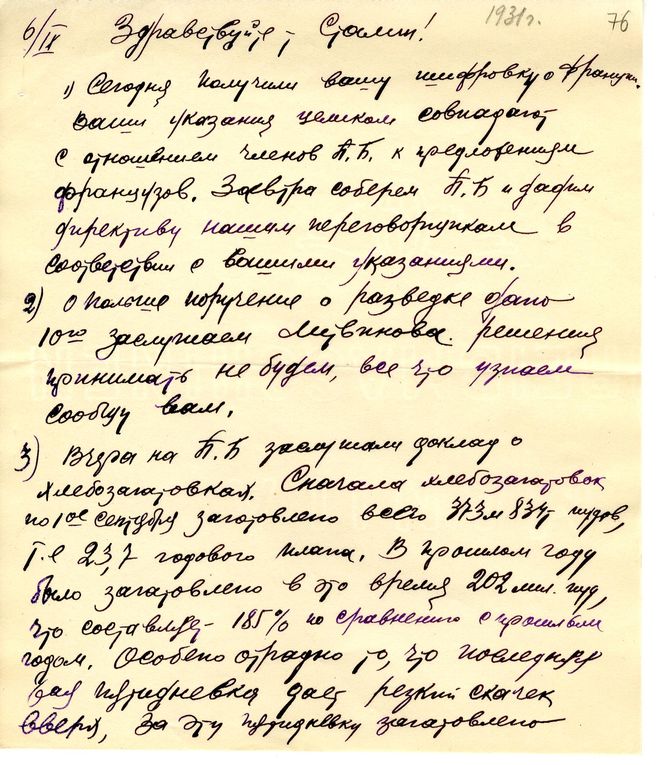 1931 г. 76
6/IX Здравствуйте, Сталин!
1) Сегодня получили вашу шифровку о Франции.
Ваши указания целиком совпадают
с отношением членов П.Б. к предложениям
французов. Завтра соберем П.Б и дадим
директиву нашим переговорщикам в
соответствии с вашими указаниями.
2) О Польше поручение о разведке дано
10го заслушаем Литвинова. решения
принимать не будем, все что узнаем
сообщу вам.
3) Вчера на П.Б заслушали доклад о
хлебозаготовках. Сначала хлебозаготовок
по 1ое сентября заготовлено всего 373м 834т пудов,
т.е 23,7 годового плана. В прошлом году
было заготовлено в это время 202 мил. пуд,
что составляет 185% по сравнению с прошлым
годом. Особено отрадно то, что последняя
пятидневка дает резкий скачек
вверх, За эту пятидневку заготовлено